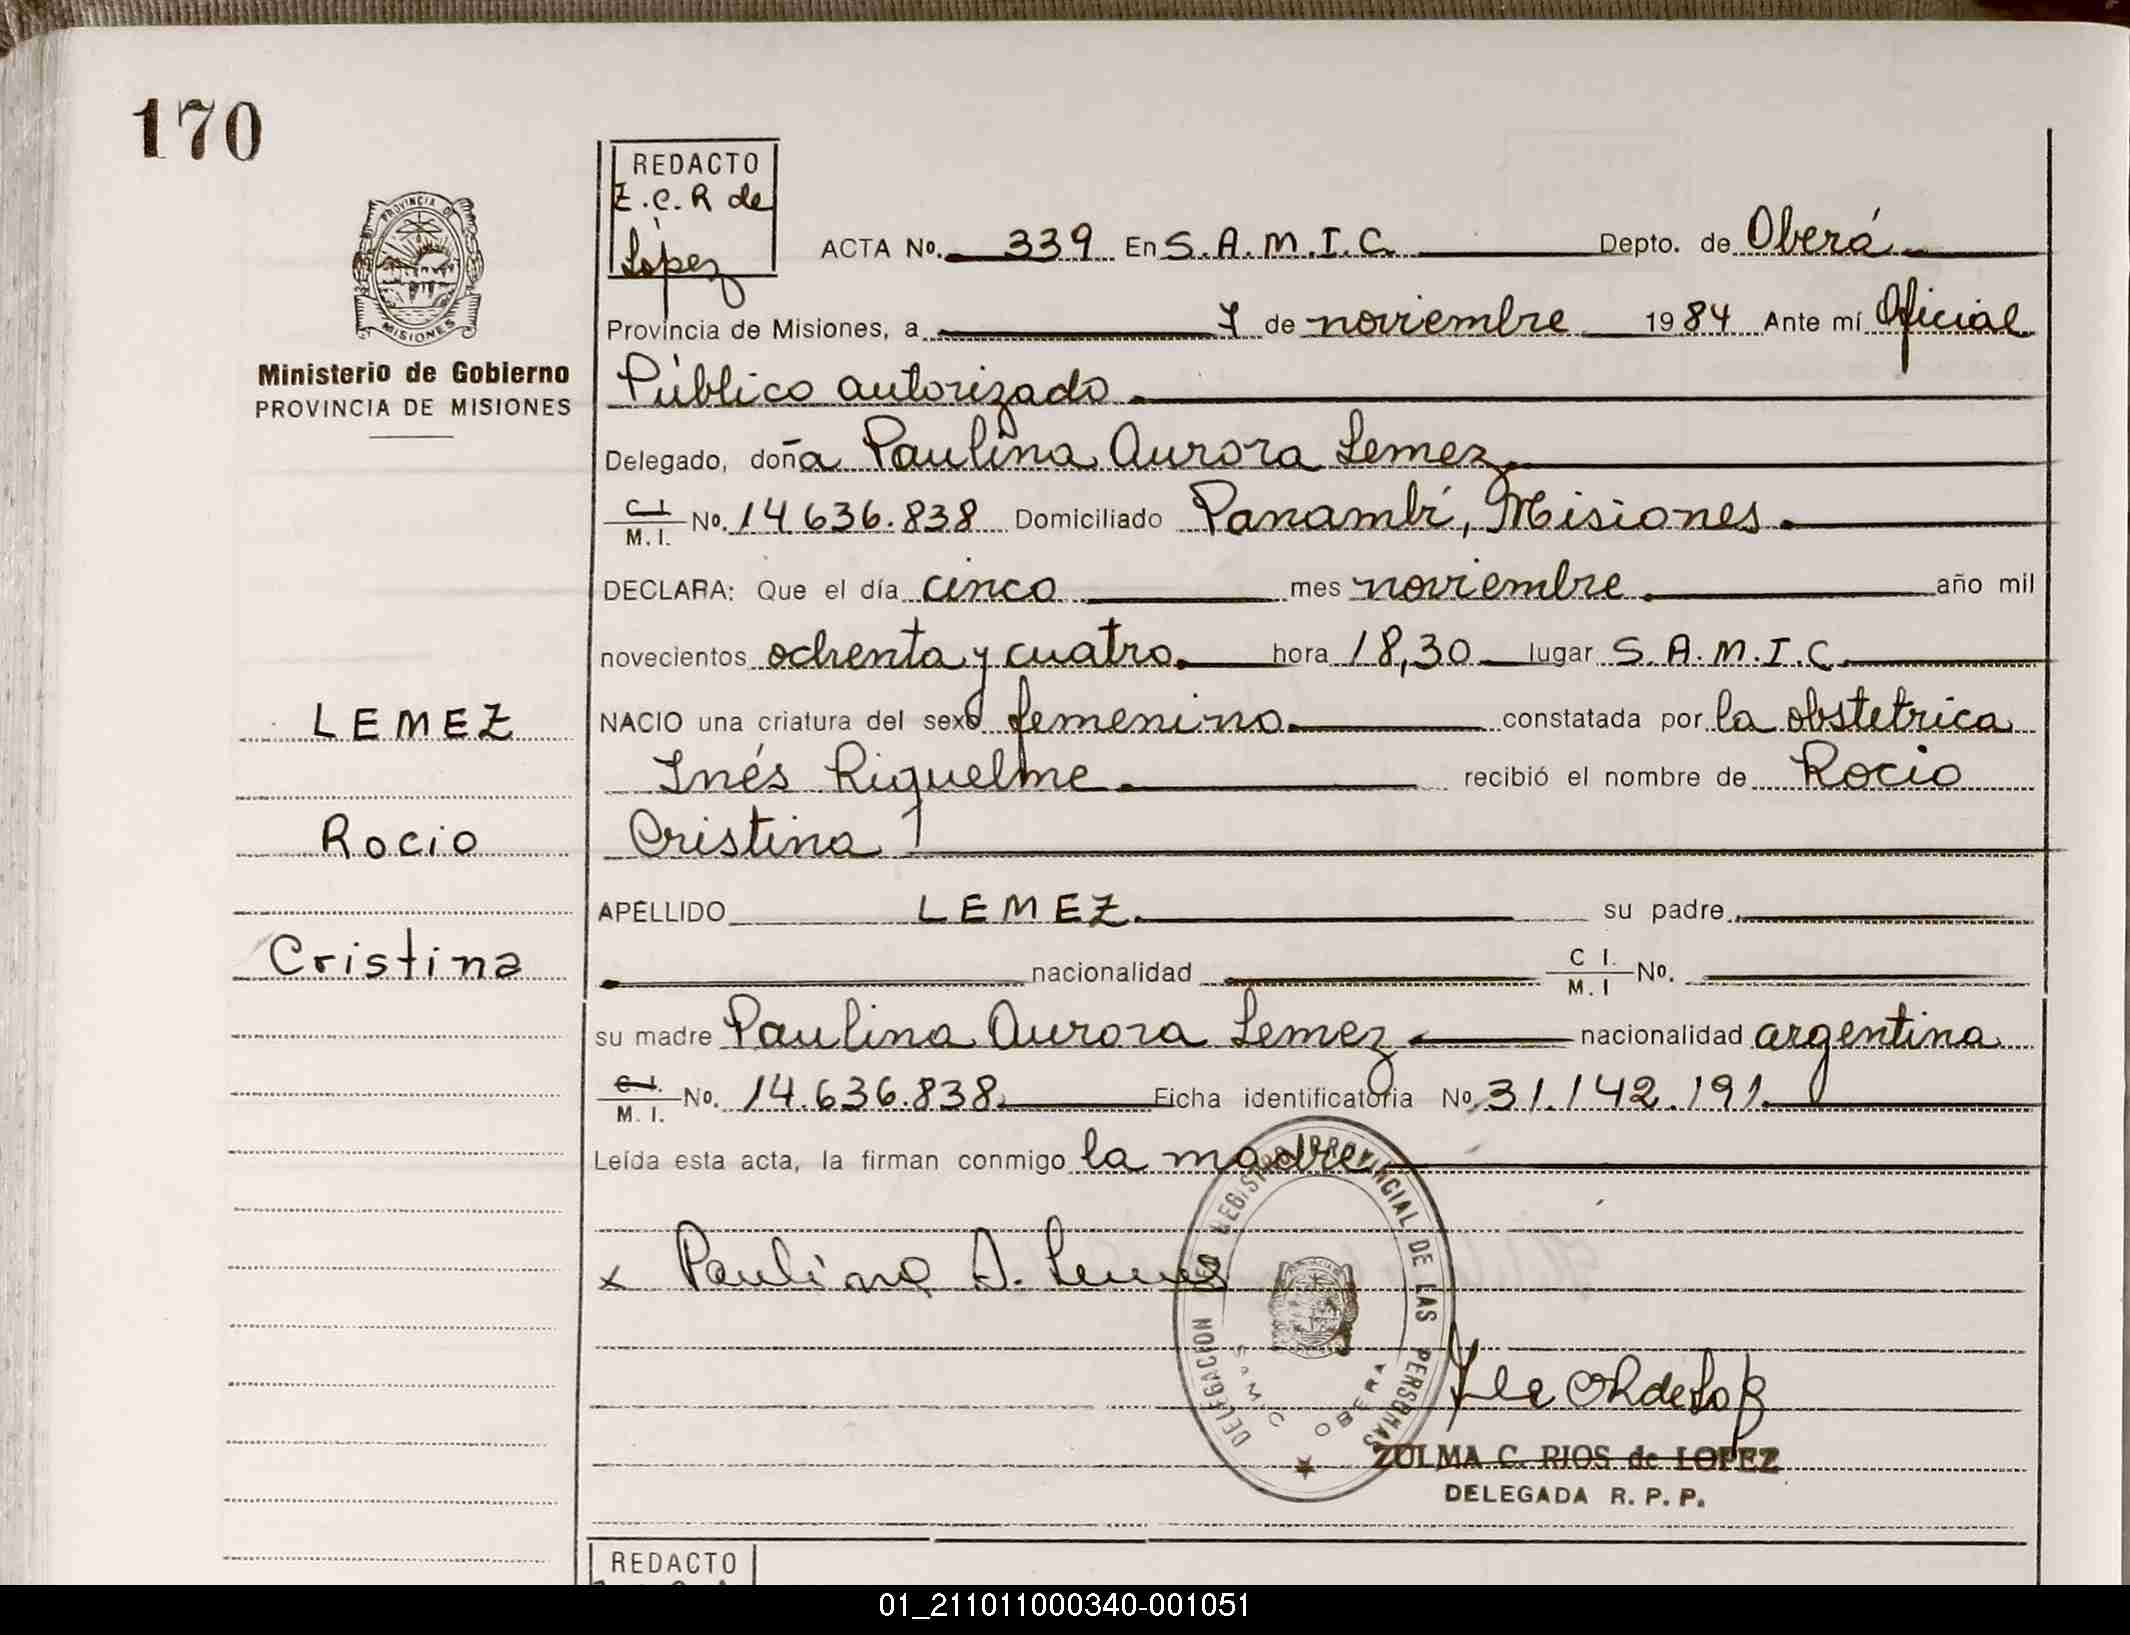 170
REDACTO
Z.C.R de
López
PROVINCIA DE
MISIONES
Ministerio de Gobierno
PROVINCIA DE MISIONES
ACTA No. 339 En S.A.M.I.C. Depto. de Oberá
Provincia de Misiones, a 7 de noviembre 1984 Ante mí Oficial
Público autorizado
Delegado, doña Paulina Aurora Lemez
C.I. M.I. No. 14.636.838 Domiciliado Panambí, Misiones.
DECLARA: Que el día cinco mes noviembre año mil
novecientos ochenta y cuatro. hora 18,30 lugar S.A.M.I.C.
LEMEZ
NACIO una criatura del sexo femenino. constatada por la obstetrica
Inés Riquelme recibió el nombre de Rocio
Rocio
Cristina
APELLIDO LEMEZ. su padre
Cristina
nacionalidad C.I. M.I No.
su madre Paulina Aurora Lemez nacionalidad argentina
C.I. M.I. No. 14.636.838. Ficha identificatoria No 31.142.191.
Leída esta acta, la firman conmigo la madre
x Paulina A. Lemez
DELEGACION DEL REGISTRO PROVINCIAL DE LAS PERSONAS
SAMIC OBERA
ZULMA C. RIOS de LOPEZ
DELEGADA R. P. P.
REDACTO
01_211011000340-001051